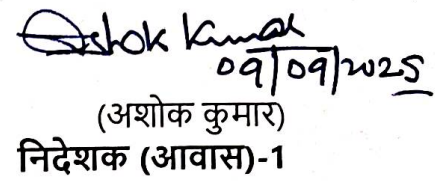 Ashok Kumar
09/09/2025
(अशोक कुमार)
निदेशक (आवास)-1